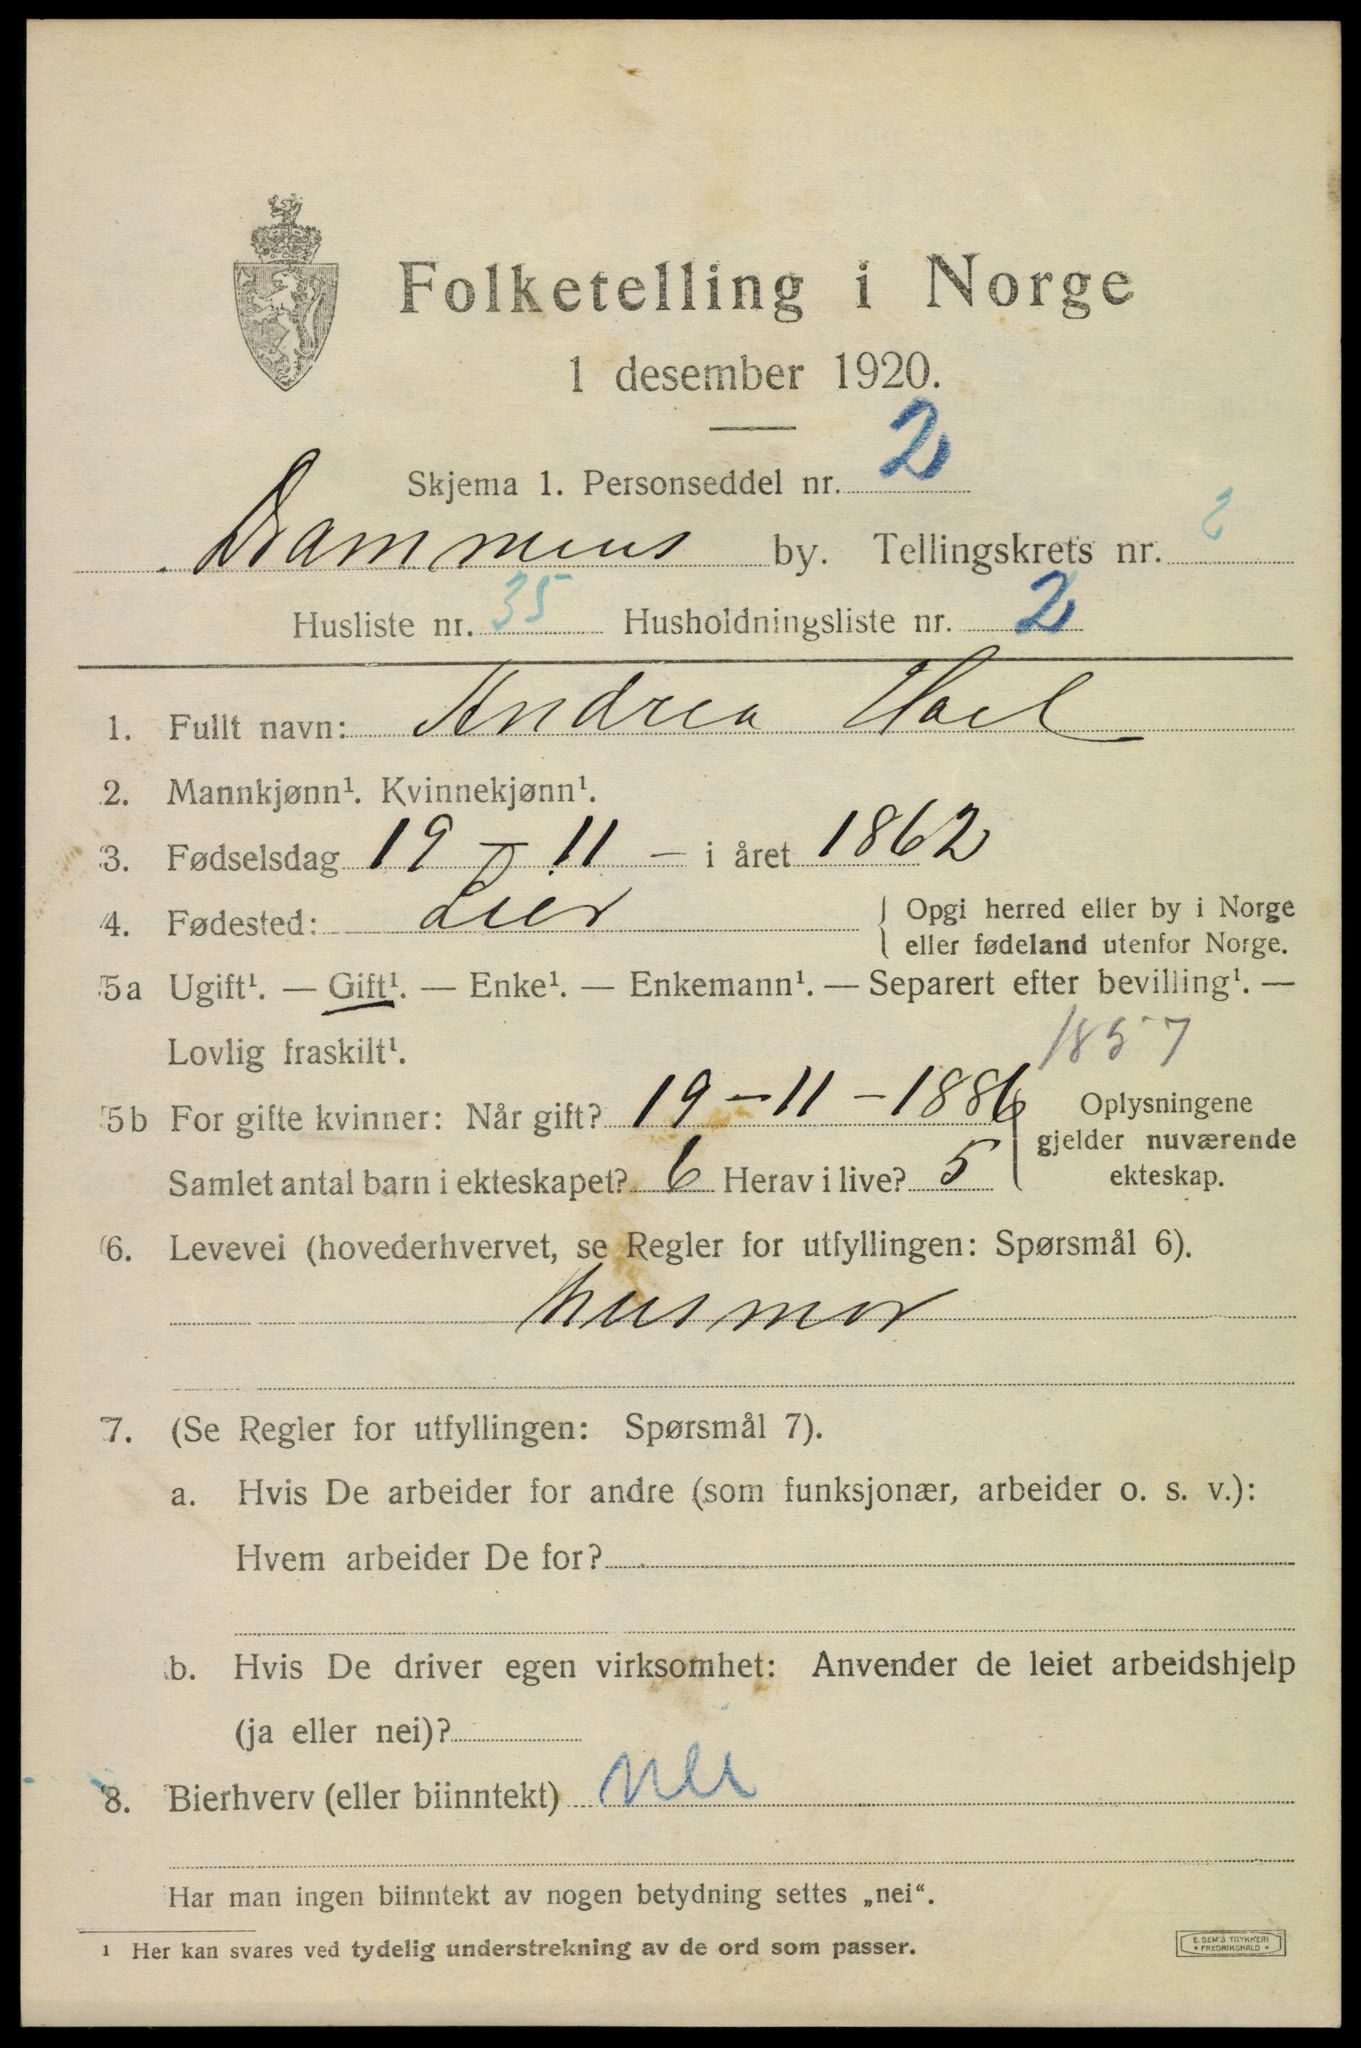 Folketelling i Norge
1 desember 1920.
Skjema 1. Personseddel nr. 2
Drammens by. Tellingskrets nr. 2
Husliste nr. 35 Husholdningsliste nr. 2
1. Fullt navn: Andrea Hoel
2. Mannkjønn¹. Kvinnekjønn¹.
3. Fødselsdag 19 – 11 – i året 1862
4. Fødested: Lier { Opgi herred eller by i Norge
eller fødeland utenfor Norge.
5a Ugift¹. — Gift¹. — Enke¹. — Enkemann¹. — Separert efter bevilling¹. —
Lovlig fraskilt¹.
1857
5b For gifte kvinner: Når gift? 19 – 11 – 1886 Oplysningene
gjelder nuværende
Samlet antal barn i ekteskapet? 6 Herav i live? 5 ekteskap.
6. Levevei (hovederhvervet, se Regler for utfyllingen: Spørsmål 6).
husmor
7. (Se Regler for utfyllingen: Spørsmål 7).
a. Hvis De arbeider for andre (som funksjonær, arbeider o. s. v.):
Hvem arbeider De for?
b. Hvis De driver egen virksomhet: Anvender de leiet arbeidshjelp
(ja eller nei)?
8. Bierhverv (eller biinntekt) nei
Har man ingen biinntekt av nogen betydning settes „nei“.
¹ Her kan svares ved tydelig understrekning av de ord som passer.
E. SEM'S TRYKKERI
* FREDRIKSHALD *